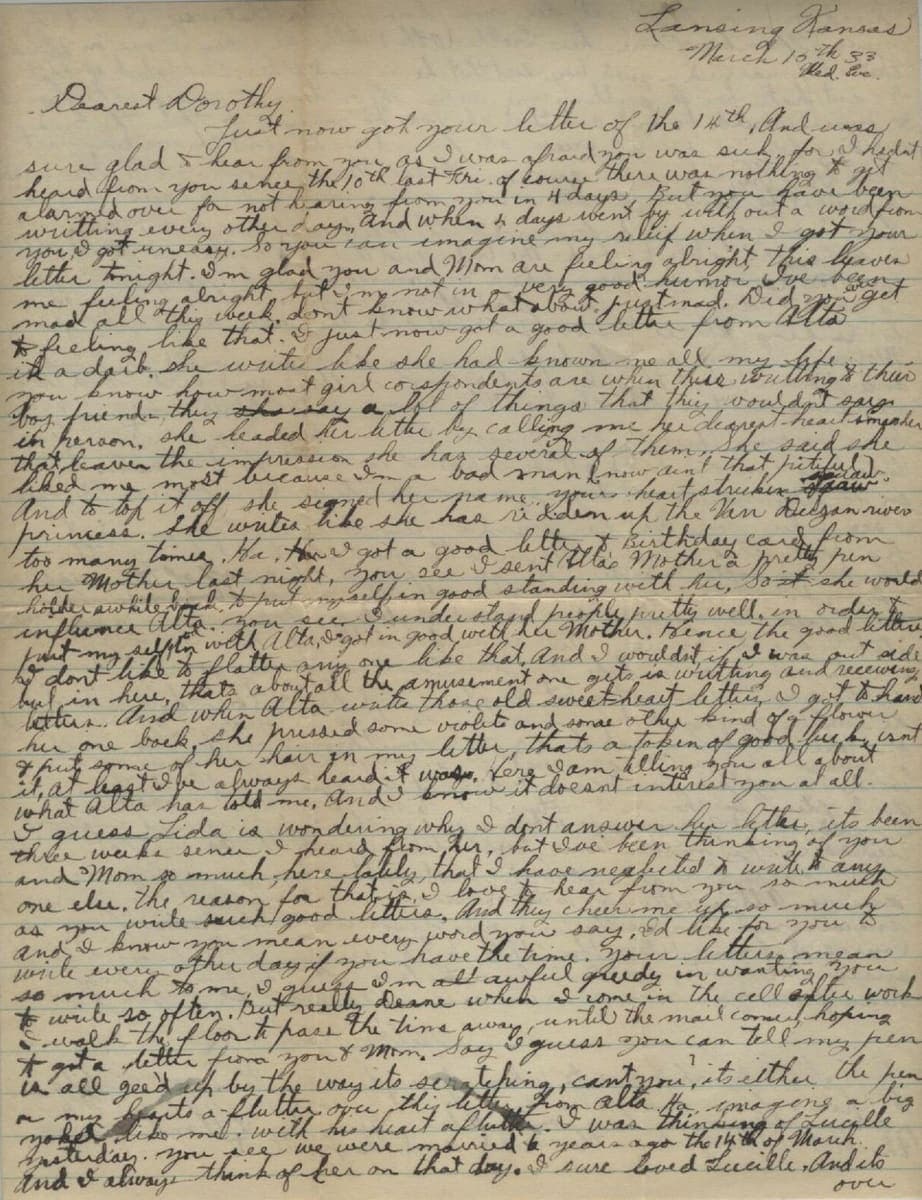 Lansing Kansas
March 15th 33
Wed. Eve.
Dearest Dorothy.
Just now got your letter of the 14th, And was
sure glad to hear from you, as I was afraid you was sick, for I hadnt
heard from you sence the 10th last Fri. of course there was nothing to get
alarmed over for not hearing from you in 4 days, But you have been
writting every other day, And when 4 days went by with out a word from
you, I got uneasy. So you can imagine my relief when I got your
letter tonight. I'm glad you and Mom are feeling alright, this leaves
me feeling alright but I'm not in a very good humor I've been
mad all this week, dont know what about, just mad. Did you ever get
to feeling like that. I just now got a good letter from Alta
its a darb. she writes like she had known me all my life.
you know how most girl corspondents are when their writting to their
boy friends they say a lot of things that they wouldn't say
in person. she headed her letter by calling me her dearest heart smasher
that leaves the impression she has several of them, She said she
liked me most because I'm a bad man, now ain't that pitiful.
And to top it off she signed her name yours heart stricken
princess. She writes like she has ridden up the Verdegan river
too many times, Ha. Ha I got a good letter & Birthday card from
her Mother last night, you see I sent Altas Mother a pretty pen
holder awhile back, to put myself in good standing with her, So she would
influence Alta. you see I understand people pretty well. in order to
put my self in with Alta, I got in good with her Mother. Hence the good letters
I dont like to flatter any one like that, And I wouldn't if I was out side
but in here, thats about all the amusement one gets is writting and receiving
letters. And when Alta writes those old sweet heart letters, I got to hand
her one back, she pressed some violets and some other kind of a flower
& put some of her hair in my letter, thats a token of good luck, isnt
it, at least I've always heard it was. Here I am telling you all about
what Alta has told me, And I know it doesnt interest you at all.
I guess Lida is wondering why I dont answer her letter, its been
three weeks sence I heard from her, but I've been thinking of you
and Mom so much, here lately, that I have neglected to write to any
one else. the reason for that is, I love to hear from you so much
as you write such good letters. And they cheer me up so much
and I know you mean every word you say. I'd like for you to
write every other day if you have the time. Your letters mean
so much to me, I guess I'm awful greedy in wanting you
to write so often. But really Deane when I come in the cell after work
I walk the floor to pass the time away, until the mail comes, hoping
to get a letter from you & Mom. Say I guess you can tell my pen
is all geed up by the way its scratching, cant you? its either the pen
or my hearts a-flutter over this letter from Alta Ha. imagine a big
like me. with his heart aflutter. I was thinking of Lucille
yesterday. you see we were married 6 years ago the 14th of March.
And I always think of her on that day. I sure loved Lucille, And its
over